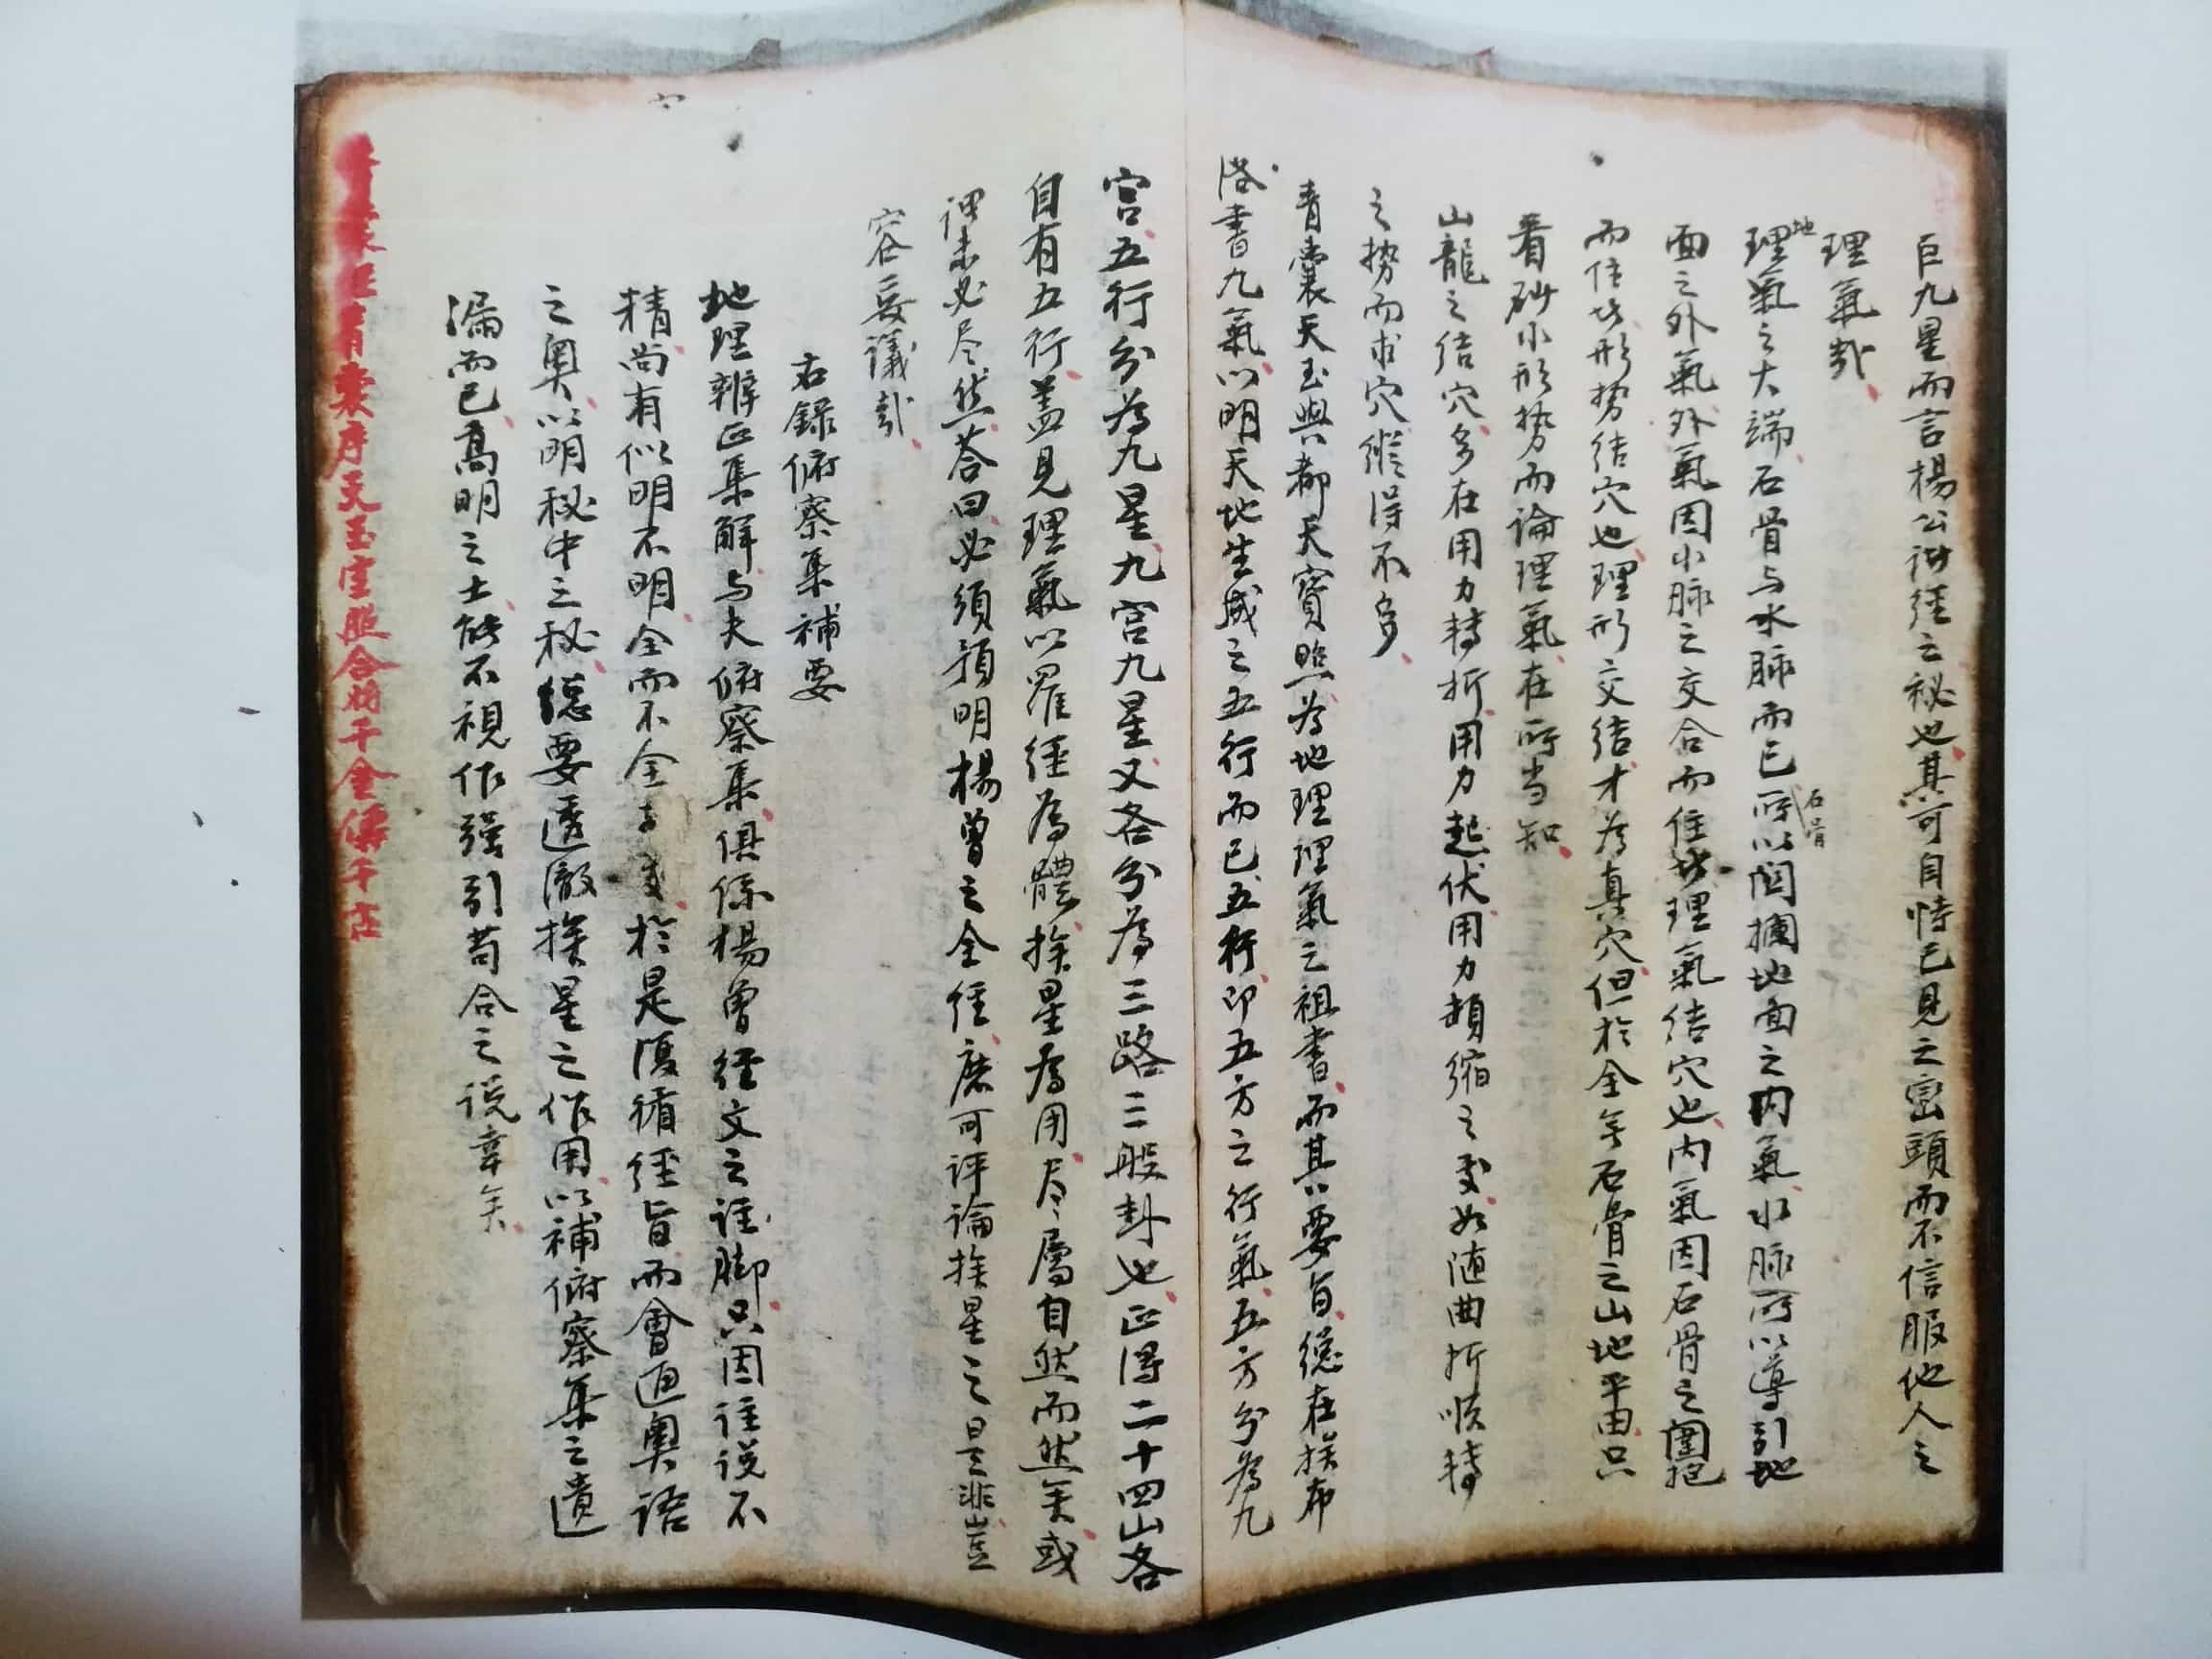 巨九星而言楊公術經之秘也其可自恃己見之巒頭而不信服他人之
理氣哉
地理氣之大端石骨与水脉而已石骨所以関攔地面之内氣水脉所以導引地
面之外氣外氣因水脉之交合而住于理氣結穴也内氣因石骨之圍抱
而住于形势結穴也理形交結才為真穴但於全無石骨之山地平田只
看砂水形势而論理氣在所当知
山龍之結穴多在用力轉折用力起伏用力頓縮之處如随曲折順轉
之势而求穴縱得不多
青囊天玉與都天寳照為地理理氣之祖書而其要旨總在挨布
洛書九氣以明天地生成之五行而已五行即五方之行氣五方分為九
宮五行分為九星九宮九星又各分為三路三般卦也正得二十四山各
自有五行蓋見理氣以羅經為體挨星為用尽屬自然而然矣或
謂未必尽然答曰必須預明楊曾之全經庶可評論挨星之是非豈
容妄議哉
右錄俯察集補要
地理辨正集解与夫俯察集俱係楊曾經文之註脚只因註说不
精尚有似明不明全而不全於是復循經旨而會通奥語
之奥以明秘中之秘總要透徹挨星之作用以補俯察集之遺
漏而已高明之士能不視作强引苟合之说幸矣
青囊序天玉宝照合